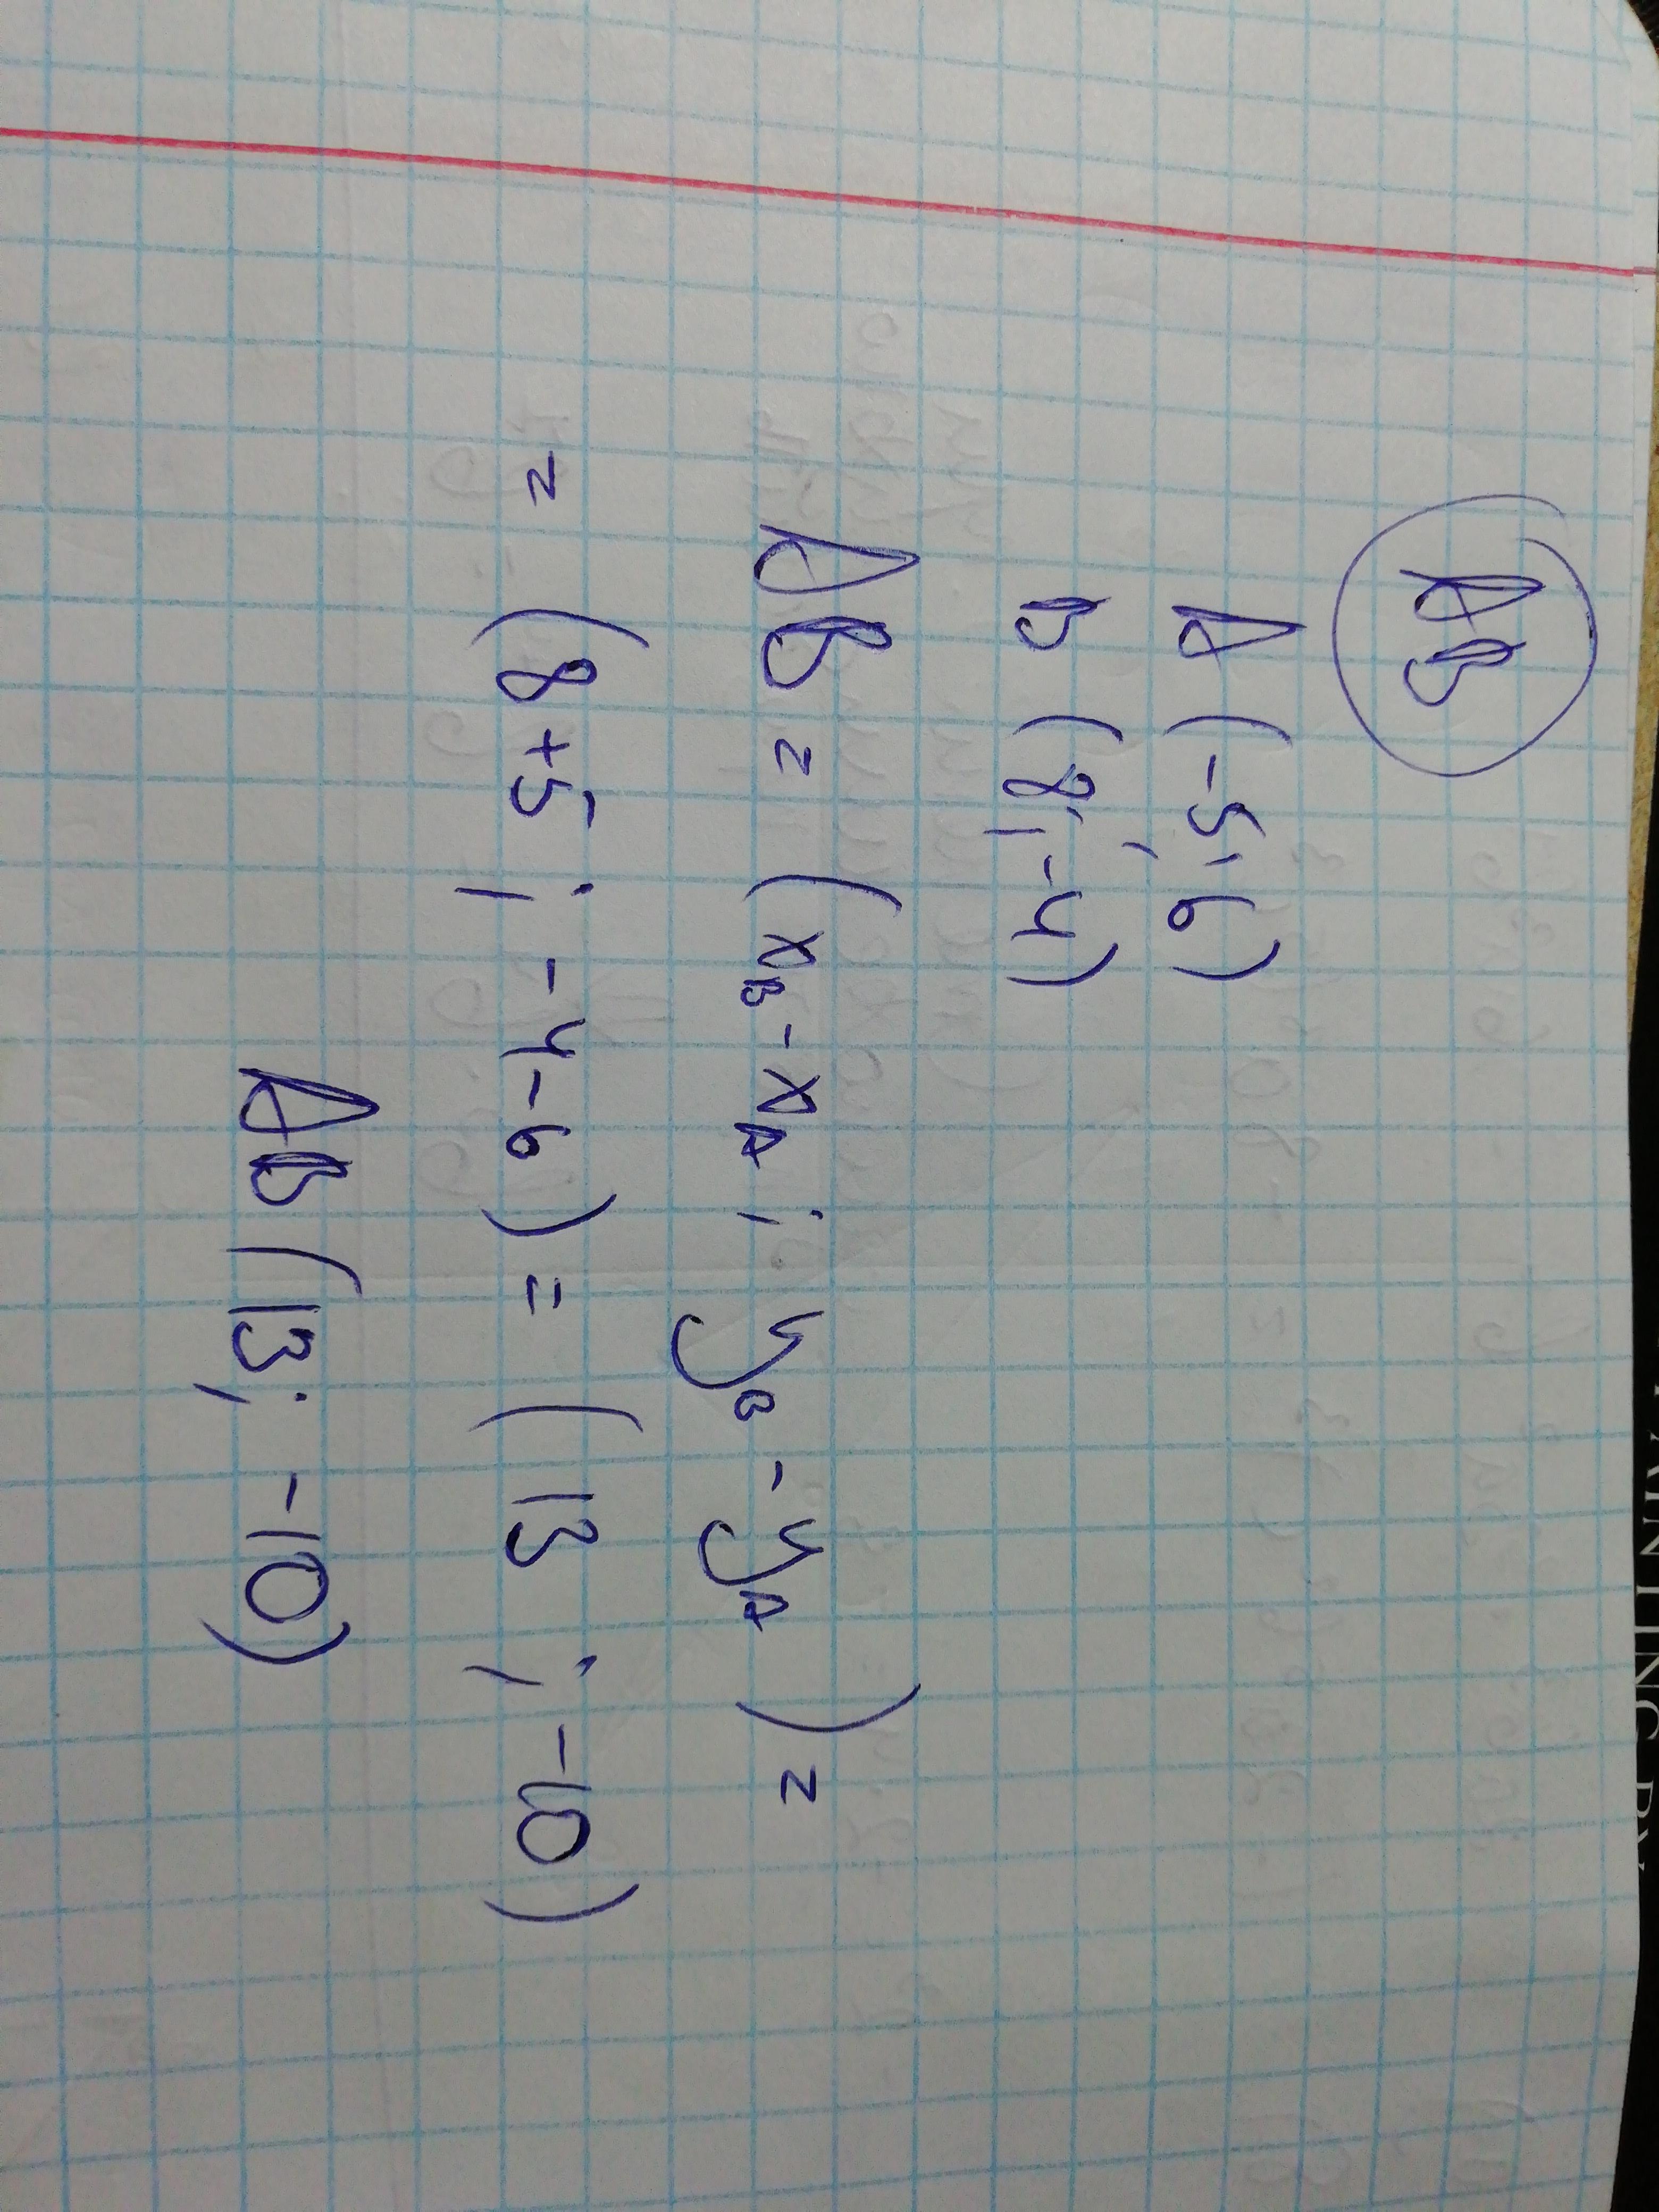 AB
A (-5; 6)
B (8; -4)
AB = (xB - xA ; yB - yA) =
= (8 +5 ; -4-6) = (13 ; -10)
AB (13; -10)